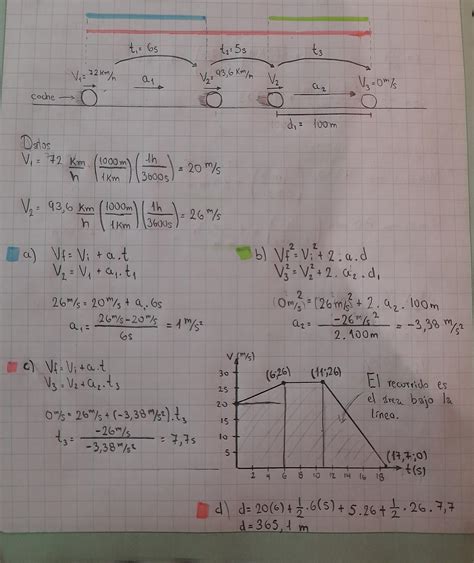 t₁ = 6s t₂ = 5s t₃
V₁ = 72 Km/h a₁ V₂ = 93,6 Km/h V₂ a₂ V₃ = 0 m/s
coche
d₁ = 100m
Datos
V₁ = 72 Km/h (1000m/1Km) (1h/3600s) = 20 m/s
V₂ = 93,6 Km/h (1000m/1Km) (1h/3600s) = 26 m/s
a) Vf = Vi + a.t
V₂ = V₁ + a₁.t₁
26 m/s = 20 m/s + a₁.6s
a₁ = 26 m/s - 20 m/s / 6s = 1 m/s²
b) Vf² = Vi² + 2.a.d
V₃² = V₂² + 2.a₂.d₁
(0 m/s)² = (26 m/s)² + 2.a₂.100m
a₂ = -26 m/s² / 2.100m = -3,38 m/s²
c) Vf = Vi + a.t
V₃ = V₂ + a₂.t₃
0 m/s = 26 m/s + (-3,38 m/s²).t₃
t₃ = -26 m/s / -3,38 m/s² = 7,7s
V (m/s)
30
25
20
15
10
5
(6,26) (11,26)
El recorrido es
el área bajo la
línea.
(17,7;0)
2 4 6 8 10 12 14 16 18
t(s)
d) d = 20(6) + 1/2.6(s) + 5.26 + 1/2.26.7,7
d = 365,1 m